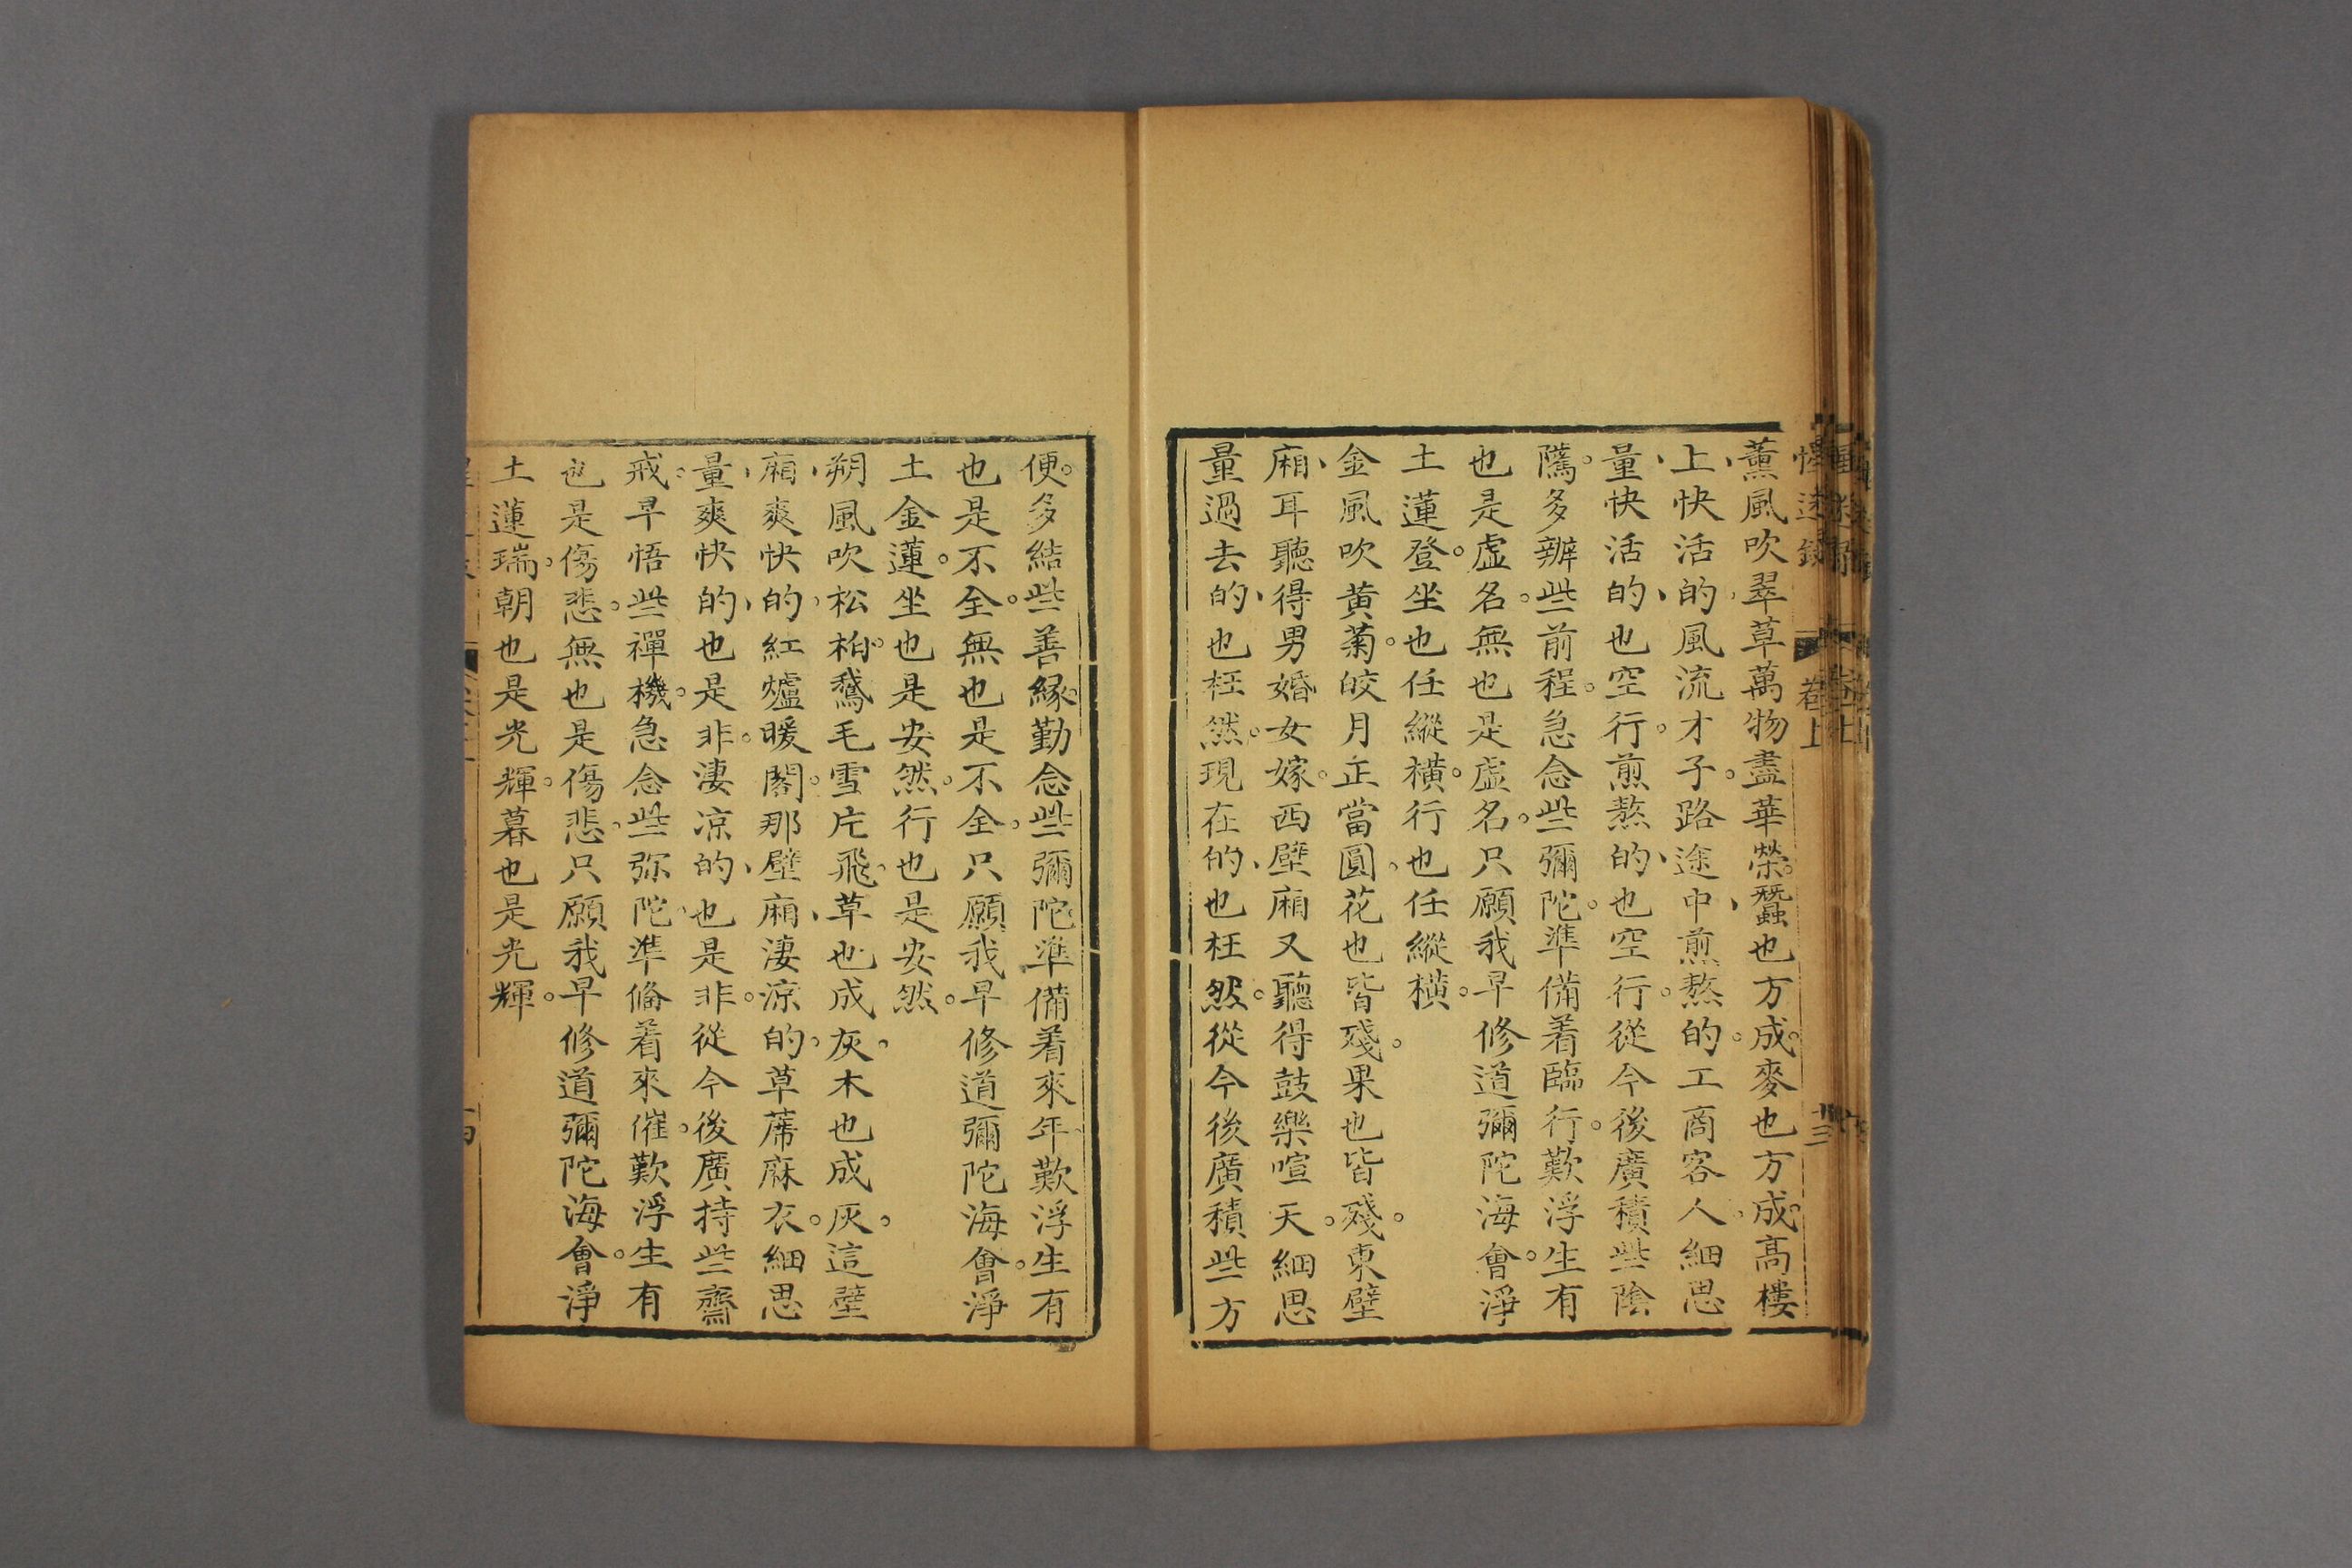 薰風吹翠草萬物盡華榮。蠶也方成。麥也方成。高樓
上、快活的、風流才子。路途中、煎熬的。工商客人。細思
量、快活的、也空行。煎熬的、也空行。從今後廣積些陰
隲。多辦些前程。急念些彌陀。準備着臨行。歎浮生有
也是虛名。無也是虛名。只願我早修道彌陀海會。淨
土蓮登。坐也任縱橫。行也任縱橫。
金風吹黃菊。皎月正當圓。花也皆殘。果也皆殘。東壁
廂、耳聽得男婚女嫁。西壁廂又聽得鼓樂喧天。細思
量過去的、也枉然。現在的、也枉然。從今後廣積些方
便。多結些善緣。勤念些彌陀。準備着來年。歎浮生有
也是不全。無也是不全。只願我早修道彌陀海會。淨
土金蓮。坐也是安然。行也是安然。
朔風吹松柏。鵞毛雪片飛。草也成灰。木也成灰。這壁
廂、爽快的、紅爐暖閣。那壁廂、淒涼的、草蓆麻衣。細思
量、爽快的、也是非。淒凉的、也是非。從今後廣持些齋
戒。早悟些禪機。急念些弥陀。準俻着來催。歎浮生有
也是傷悲。無也是傷悲。只願我早修道彌陀海會。淨
土蓮瑞。朝也是光輝。暮也是光輝。
卷上